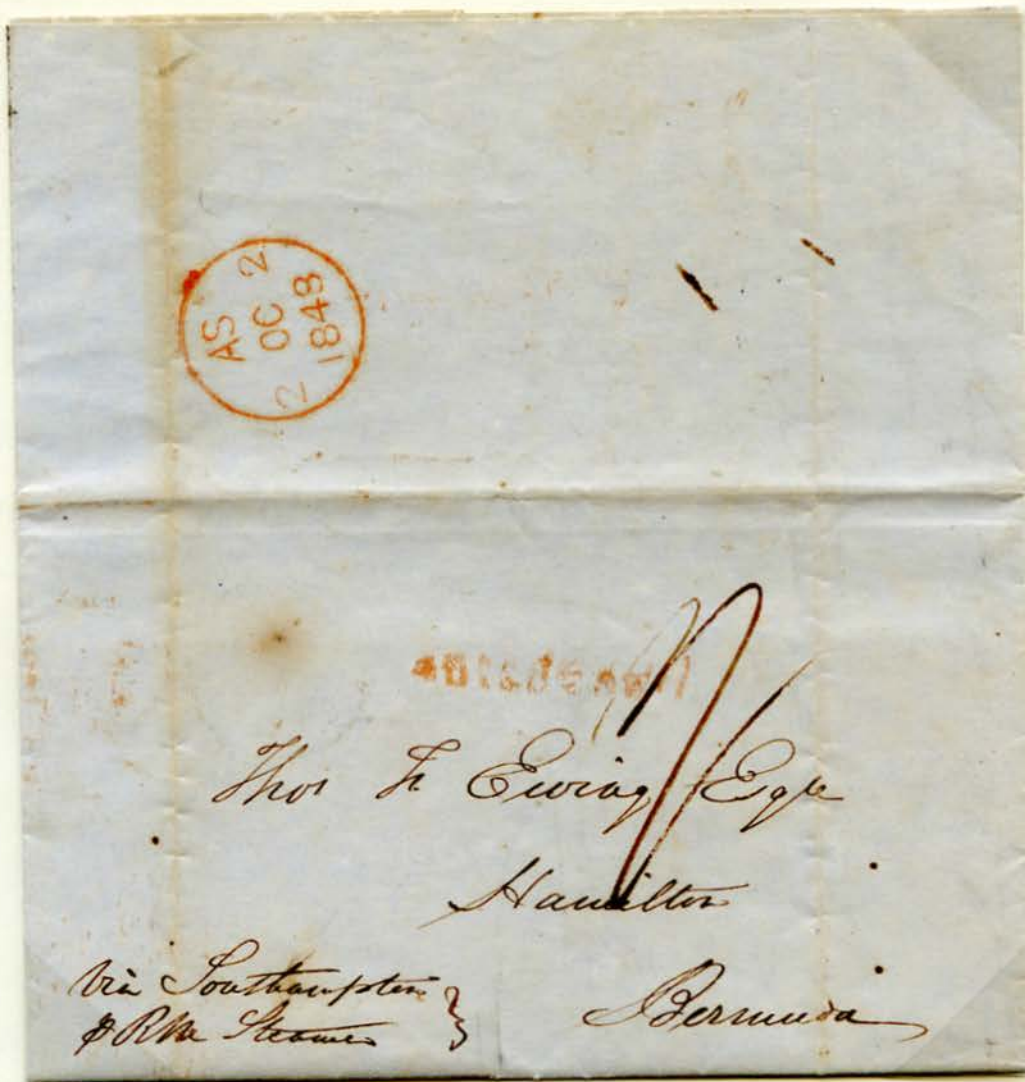 AS
OC 2
2 1848
Thos F Ewing Esqr
Hamilton
Bermuda
Via Southampton
p RM Steamer